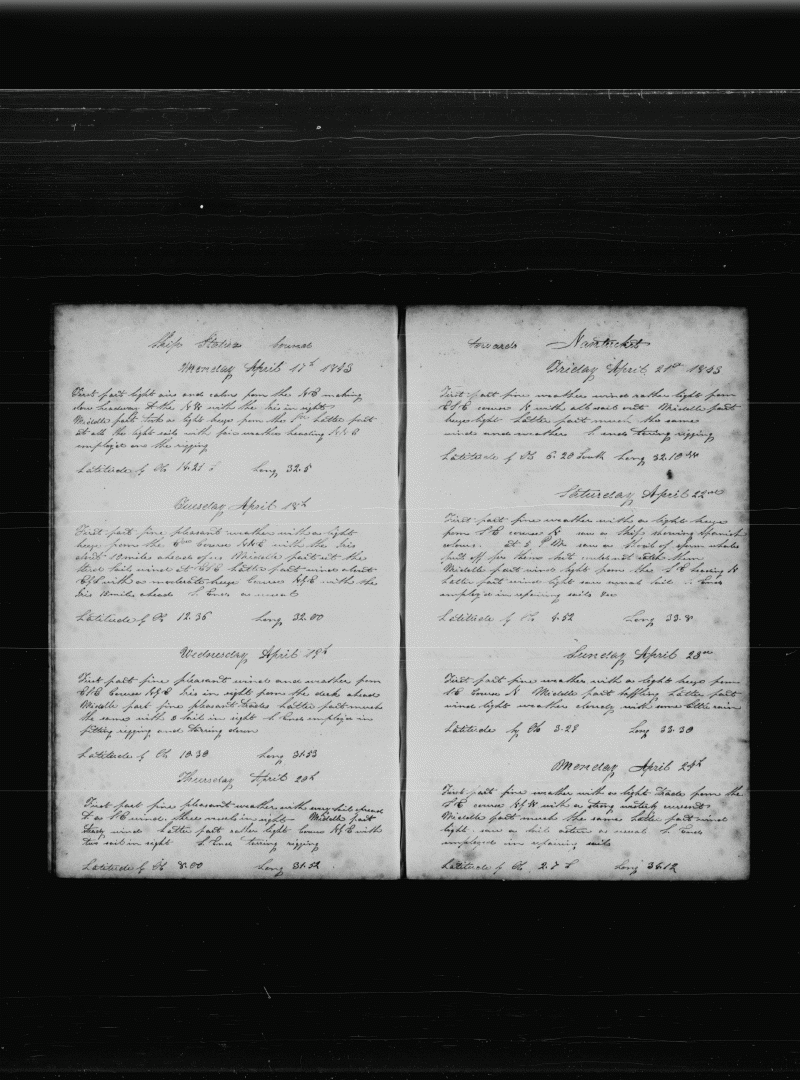 Ship States bound
Monday April 17th 1843
First part light airs and calms from the NE making
slow headway at the NW with the Iris in sight
Middle part took a light breeze from the Latter part
set all the light sails with fine weather heading
employed on the rigging
Latitude by Ch 14.21 S Long 32.5
Tuesday April 18th
First part fine pleasant weather with a light
breeze from the Course NNE with the Iris
about 12 miles ahead of us Middle part set the
Stud sails wind at Latter part wind about
with a moderate breeze Course with the
Iris 12 miles ahead as usual
Latitude by Ch 12.36 Long 32.00
Wednesday April 19th
First part fine pleasant wind and weather from
ESE Course Iris in sight from the deck ahead
Middle part fine pleasant trades Latter part much
the same with a sail in sight employed in
fitting rigging and tarring down
Latitude by Ch 10.30 Long 31.53
Thursday April 20th
First part fine pleasant weather with sail ahead
wind three sails in sight Middle part
wind Latter part rather light Course with
sail in sight tarring rigging
Latitude by Ch 8.00 Long 31.52
towards Nantucket
Friday April 21st 1843
First part fine weather wind rather light from
ESE course N with all sail out Middle part
breeze light Latter part much the same
wind and weather tarring rigging
Latitude by Ch 6.20 South Long 32.10
Saturday April 22nd
First part fine weather with a light breeze
from SE course N saw a Ship showing Spanish
colours. at 5 PM saw a Shoal of sperm whales
put off for them but catch them
Middle part wind light from the SE heading N
Latter part wind light saw several sail
employed in repairing sails &c
Latitude by Ch 4.52 Long 33.8
Sunday April 23rd
First part fine weather with a light breeze from
SE Course N Middle part Latter part
wind light weather cloudy with some little rain
Latitude by Ch 3.29 Long 33.30
Monday April 24th
First part fine weather with a light trade from the
SE course with a strong westerly current
Middle part much the same Latter part wind
light saw a sail astern as usual
employed in repairing sails
Latitude by Ch 2.7 S Long 36.12